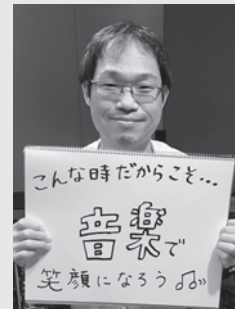 こんな時だからこそ…
音楽で
笑顔になろう♫